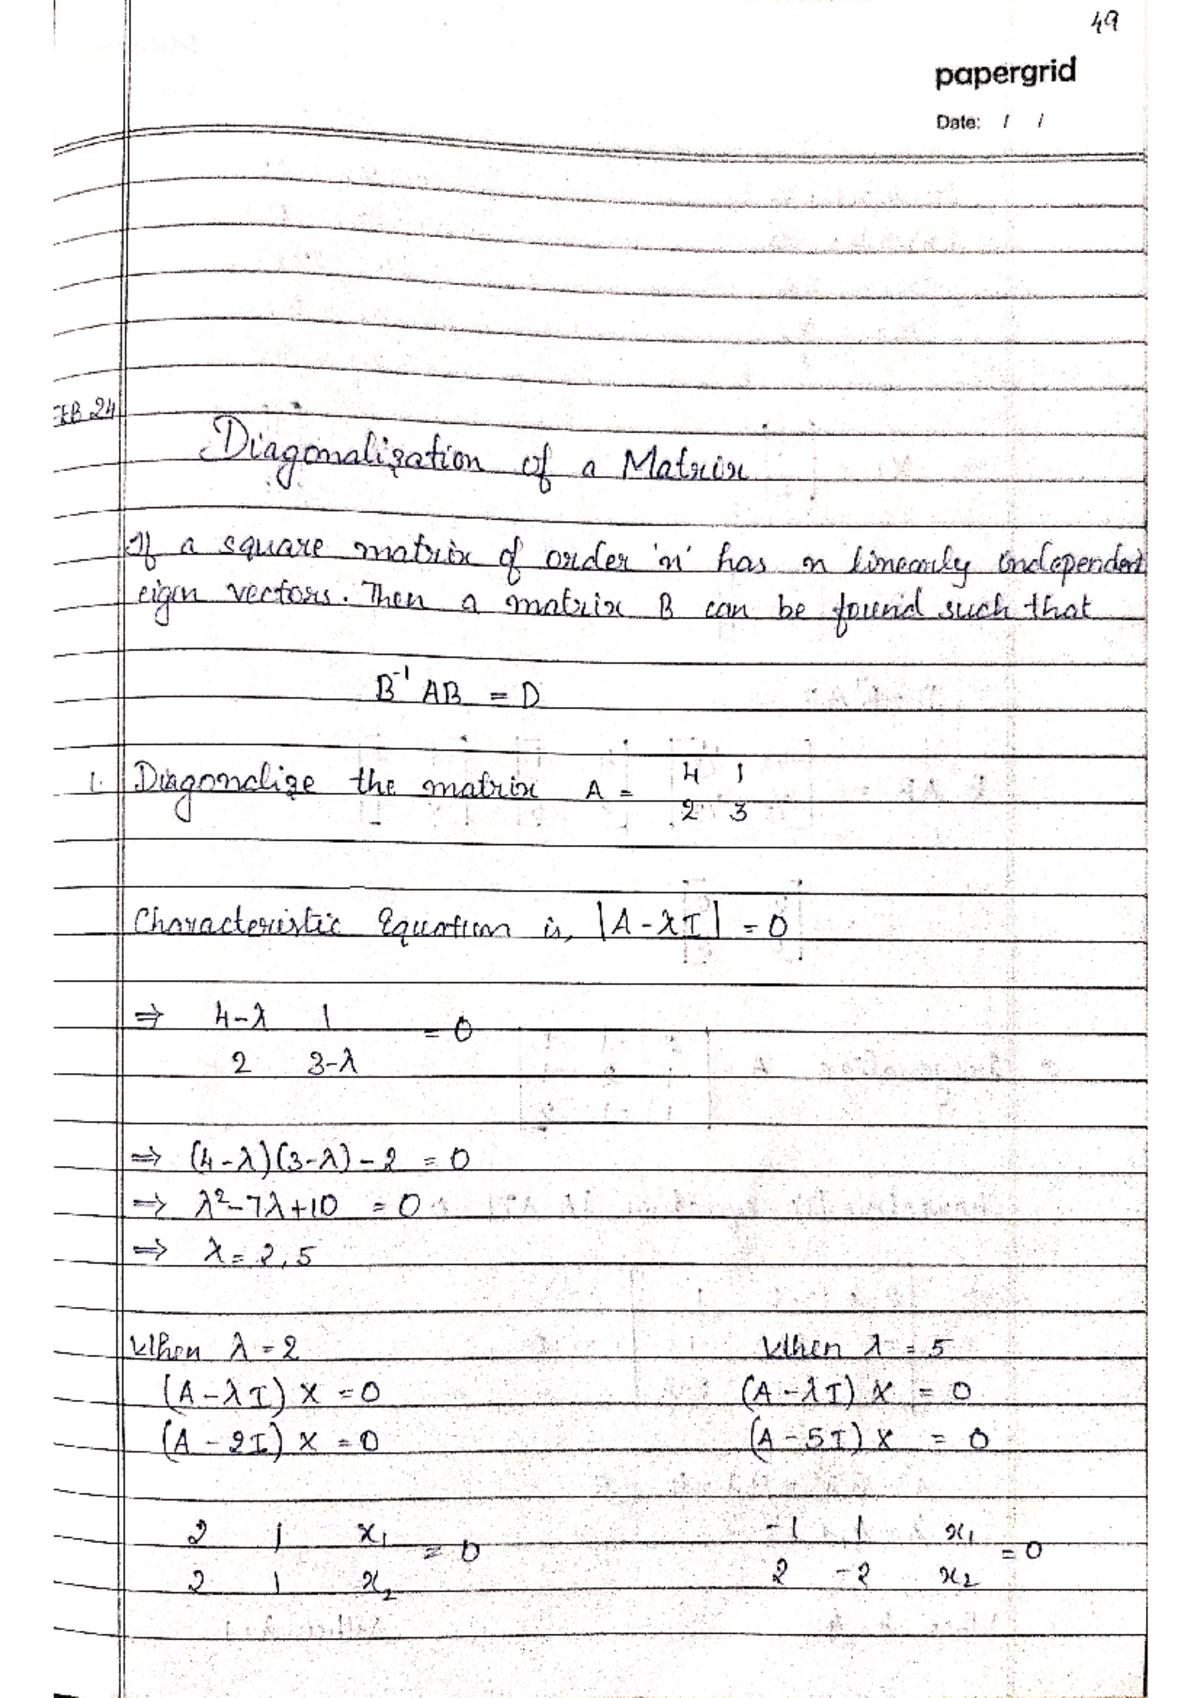 49
papergrid
Date: / /
FEB 24
Diagonalization of a Matrix
If a square matrix of order 'n' has n linearly independent
eigen vectors. Then a matrix B can be found such that
B⁻¹ AB = D
1. Diagonalize the matrix A = 4 1
2 3
Characteristic Equation is, |A - λI| = 0
⇒ 4-λ 1 = 0
2 3-λ
⇒ (4-λ)(3-λ) - 2 = 0
⇒ λ² - 7λ + 10 = 0
⇒ λ = 2, 5
When λ = 2 When λ = 5
(A - λI) X = 0 (A - λI) X = 0
(A - 2I) X = 0 (A - 5I) X = 0
2 1 x₁ = 0 -1 1 x₁ = 0
2 1 x₂ 2 -2 x₂